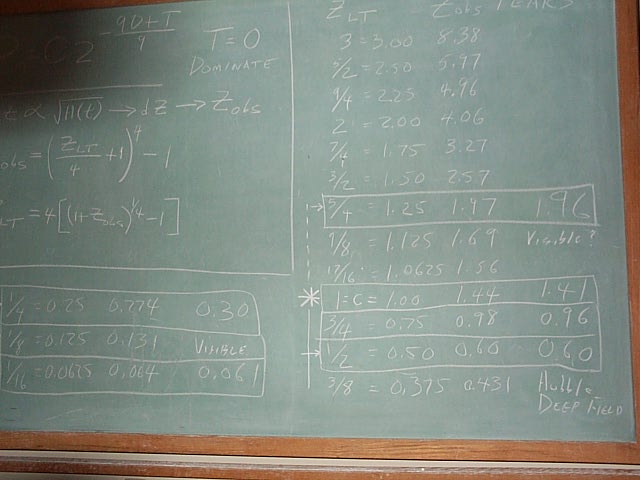 P = C 2^-(9D+T)/9 T = 0
DOMINATE
t ∝ √11(t) → dZ → Zobs
obs = (ZLT/4 + 1)^4 - 1
LT = 4[(1+Zobs)^1/4 - 1]
1/4 = 0.25 0.274 0.30
1/8 = 0.125 0.131 VISIBLE
1/16 = 0.0625 0.064 0.061
ZLT Zobs PEAKS
3 = 3.00 8.38
5/2 = 2.50 5.97
9/4 = 2.25 4.96
2 = 2.00 4.06
7/4 = 1.75 3.27
3/2 = 1.50 2.57
→ 5/4 = 1.25 1.97 1.96
9/8 = 1.125 1.69 Visible?
17/16 = 1.0625 1.56
* 1=C= 1.00 1.44 1.41
3/4 = 0.75 0.98 0.96
→ 1/2 = 0.50 0.60 0.60
3/8 = 0.375 0.431 Hubble
DEEP FIELD